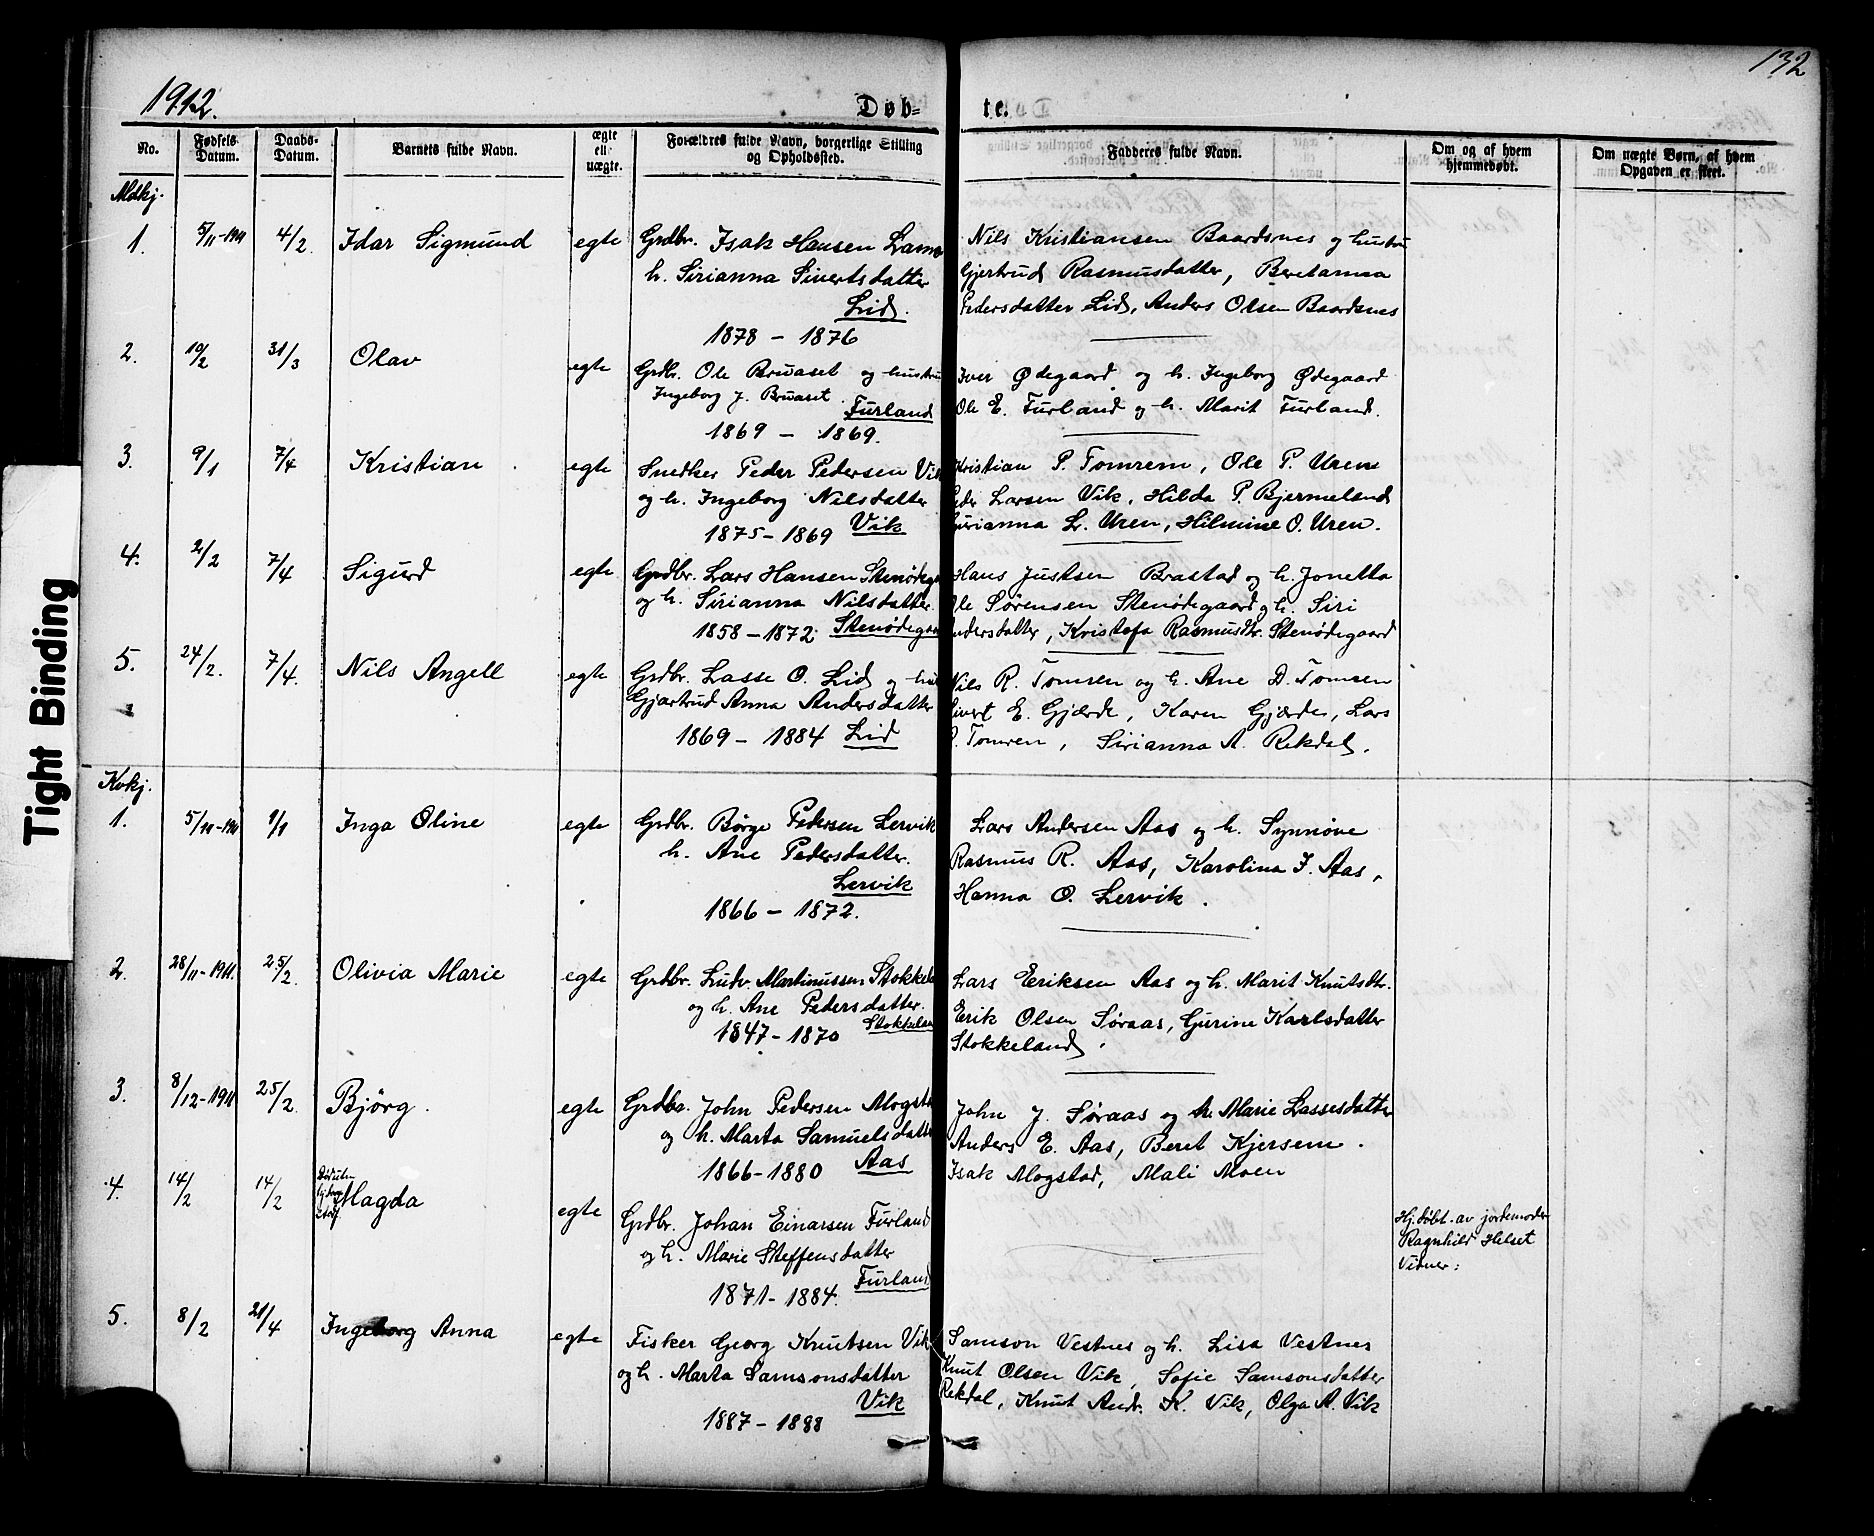 132
1912.
Døb-
te.
No.
Fødsels Datum.
Daabs-Datum.
Barnets fulde Navn.
ægte ell uægte.
Forældres fulde Navn, borgerlige Stilling og Opholdssted.
Fadderes fulde Navn.
Om og af hvem hjemmedøbt.
Om uægte Børn, af hvem Opgaven er skeet.
Tight Binding
Mdkj.
1. 5/11-1911 4/2 Idar Sigmund egte Grdbr. Isak Hansen Nils Kristiansen Baardsnes og hustru
h. Sirianna Sivertsdatter Gjertrud Rasmusdatter, Beretanna
Lid. Pedersdatter Lid, Anders Olsen Baardsnes
1878 - 1876
2. 10/2 31/3 Olav egte Grdbr. Ole Bruaset og hustru Iver Ødegaard og h. Ingeborg Ødegaard
Ingeborg J. Bruaset Furland Ole E. Furland og h. Marit Furland.
1869 - 1869.
3. 9/1 7/4 Kristian egte Snedker Peder Pedersen Vik Kristian P. Tomrem, Ole P. Uren
og h. Ingeborg Nilsdatter Peder Larsen Vik, Hilda P. Bjermeland
1875 - 1869 Vik L. Uren, Hilmine O. Uren.
4. 2/2 7/4 Sigurd egte Grdbr. Lars Hansen Hans Justsen Brastad og h. Jonetta
og h. Sirianna Nilsdatter. Ole Sørensen Stenødegaard og h. Siri
1858 - 1872. Andersdatter, Kristofa Rasmusdtr. Stenødegaard
5. 24/2. 7/4. Nils Angell egte Grdbr. Lasse O. Lid og Nils R. Tomren og h. Ane D. Tomren
Gjartrud Anna Andersdatter Sivert E. Gjærde, Karen Gjærde, Lars
1869 - 1884 Lid Tomren, Sirianna A. Rekdal.
Kvkj.
1. 5/ -1911 1/1 Inga Oline egte Grdbr. Børge Pedersen Lervik Lars Andersen Aas og h. Synnøve
h. Ane Pedersdatter. Rasmus R. Aas, Karolina I. Aas,
Lervik Hanna O. Lervik.
1866 - 1872.
2. 28/11-1911. 25/2. Olivia Marie egte Grdbr. Ludv. Martinussen Lars Eriksen Aas og h. Marit Knutsdtr.
og h. Ane Pedersdatter. Erik Olsen Søraas, Gurine Karlsdatter
1847 - 1870 Stokkeland.
3. 8/12-1911 25/2 Bjørg. egte Grdbr. John Pedersen John J. Søraas og h. Marie Lassesdatter
og h. Marta Samuelsdatter Anders E. Aas, Beret Kjersem.
1866 - 1880 Aas Isak Mogstad, Mali Moen
4. 14/2 14/2 Magda egte Grdbr. Johan Einarsen Furland Hj. døbt. av jordemoder
og h. Marie Steffensdatter Ragnhild Helset
1871 - 1884. Furland Vidner:
5. 8/2 21/4 Ingeborg Anna egte Fisker Georg Knutsen Vik Samson Vestnes og h. Lisa Vestnes
og h. Marta Samsonsdatter Knut Olsen Vik, Sofie Samsonsdatter
Vik Rekdal, Knut Andr. K. Vik, Olga A. Vik
1887 - 1888